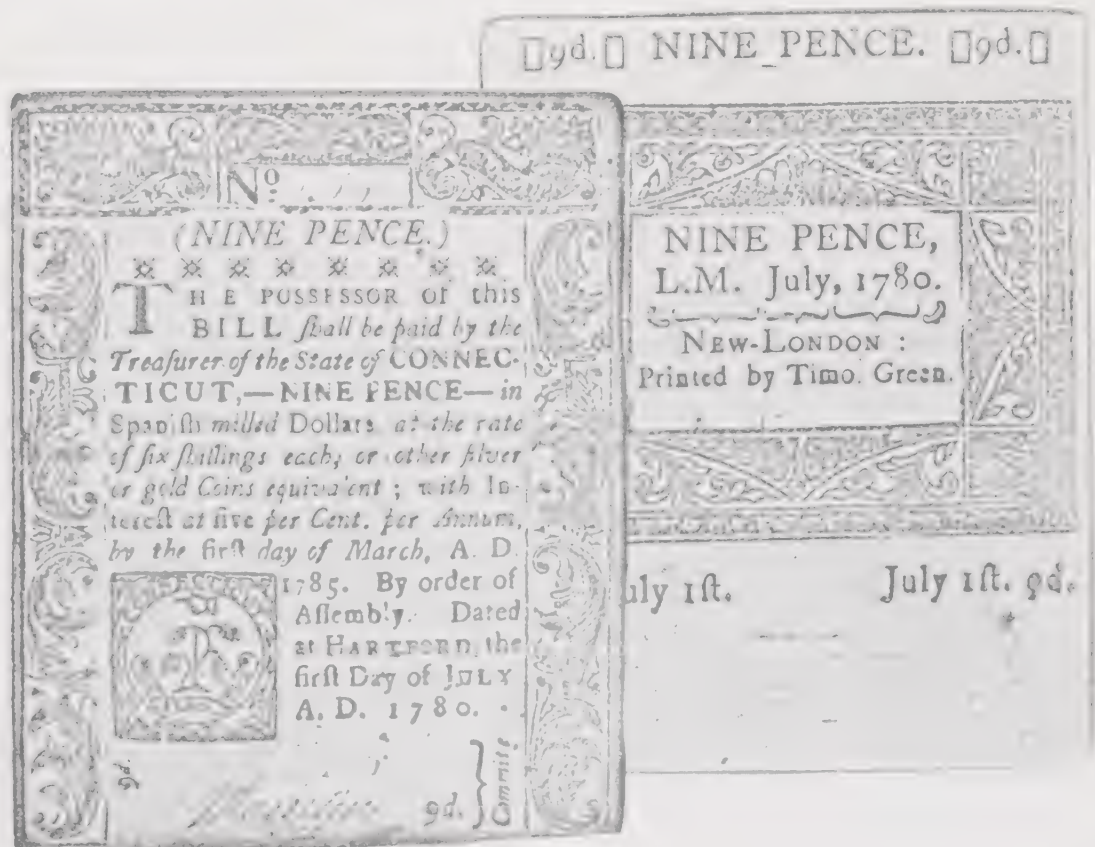 Nº
(NINE PENCE.)
THE POSSESSOR of this
BILL ſhall be paid by the
Treaſurer of the State of CONNEC-
TICUT,—NINE PENCE—in
Spaniſh milled Dollars at the rate
of ſix ſhillings each; or other ſilver
or gold Coins equivalent; with In-
tereſt at five per Cent. per Annum,
by the firſt day of March, A. D.
1785. By order of
Aſſembly. Dated
at HARTFORD, the
firſt Day of JULY
A. D. 1780.
9d.
9d. } Committe
▯9d.▯ NINE PENCE. ▯9d.▯
NINE PENCE,
L.M. July, 1780.
NEW-LONDON:
Printed by Timo. Green.
uly 1ſt. July 1ſt. 9d.